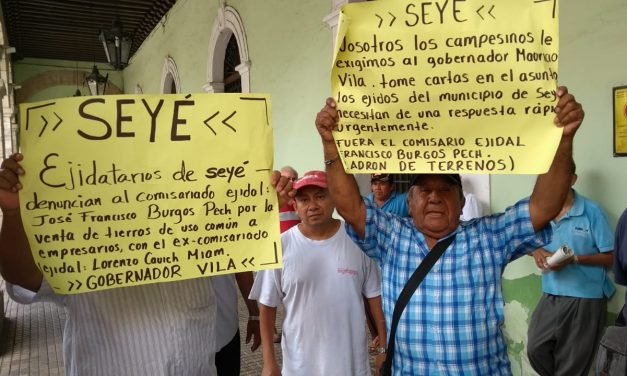 >> SEYÉ <<
Ejidatarios de seyé
denuncian al comisariado ejidal:
José Francisco Burgos Pech por la
venta de tierras de uso común a
empresarios, con el ex-comisariado
ejidal: Lorenzo Cauich Miam.
>> GOBERNADOR VILA <<
>> SEYÉ <<
Josotros los campesinos le
exigimos al gobernador Mauricio
Vila. tome cartas en el asunto
los ejidos del municipio de Sey
necesitan de una respuesta rápi
urgentemente.
FUERA EL COMISARIO EJIDAL
FRANCISCO BURGOS PECH.
LADRON DE TERRENOS)